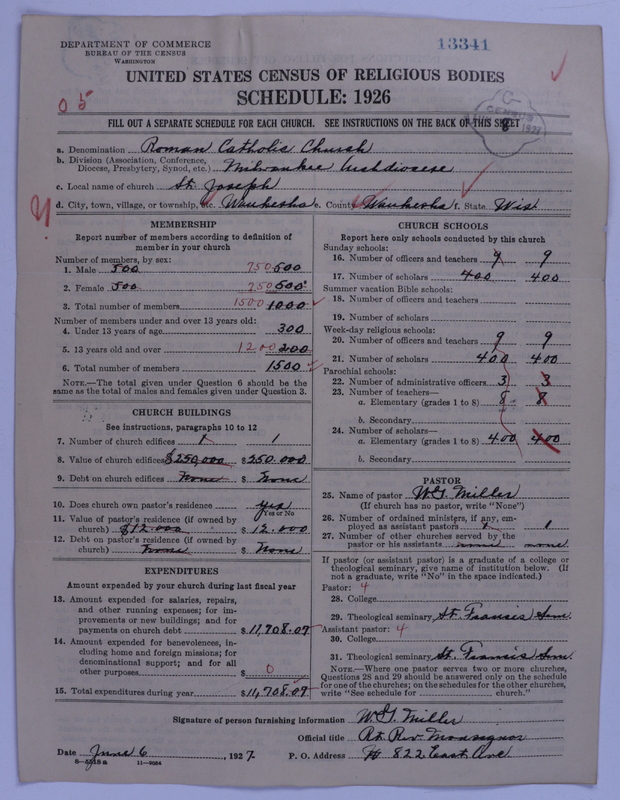 DEPARTMENT OF COMMERCE
BUREAU OF THE CENSUS
WASHINGTON
13341
UNITED STATES CENSUS OF RELIGIOUS BODIES
SCHEDULE: 1926
0 5
CENSUS
8 1927
FILL OUT A SEPARATE SCHEDULE FOR EACH CHURCH. SEE INSTRUCTIONS ON THE BACK OF THIS SHEET
a. Denomination Roman Catholic Church
b. Division (Association, Conference, Diocese, Presbytery, Synod, etc.) Milwaukee Archdiocese
c. Local name of church St. Joseph
d. City, town, village, or township, etc. Waukesha e. County Waukesha f. State Wis
MEMBERSHIP
Report number of members according to definition of
member in your church
Number of members, by sex:
1. Male 500 750 500
2. Female 500 750 500
3. Total number of members 1500 1000
Number of members under and over 13 years old:
4. Under 13 years of age 300
5. 13 years old and over 1200 200
6. Total number of members 1500
NOTE.—The total given under Question 6 should be
same as the total of males and females given under Question 3.
CHURCH BUILDINGS
See instructions, paragraphs 10 to 12
7. Number of church edifices 1 1
8. Value of church edifices $250,000 $ 250.000
9. Debt on church edifices None $ None
10. Does church own pastor's residence yes
Yes or No
11. Value of pastor's residence (if owned by
church) $12.000 $ 12.000
12. Debt on pastor's residence (if owned by
church) None $ None
EXPENDITURES
Amount expended by your church during last fiscal year
13. Amount expended for salaries, repairs,
and other running expenses; for im-
provements or new buildings; and for
payments on church debt $ 11,708.07
14. Amount expended for benevolences, in-
cluding home and foreign missions; for
denominational support; and for all
other purposes $ 0
15. Total expenditures during year $ 11,708.07
CHURCH SCHOOLS
Report here only schools conducted by this church
Sunday schools:
16. Number of officers and teachers 9 9
17. Number of scholars 400 400
Summer vacation Bible schools:
18. Number of officers and teachers
19. Number of scholars
Week-day religious schools:
20. Number of officers and teachers 9 9
21. Number of scholars 400 400
Parochial schools:
22. Number of administrative officers 3 3
23. Number of teachers—
a. Elementary (grades 1 to 8) 8 8
b. Secondary
24. Number of scholars—
a. Elementary (grades 1 to 8) 400 400
b. Secondary
PASTOR
25. Name of pastor W. G. Miller
(If church has no pastor, write "None")
26. Number of ordained ministers, if any, em-
ployed as assistant pastors 1 1
27. Number of other churches served by the
pastor or his assistants none none
If pastor (or assistant pastor) is a graduate of a college or
theological seminary, give name of institution below. (If
not a graduate, write "No" in the space indicated.)
Pastor: 4
28. College
29. Theological seminary St. Francis Sem.
Assistant pastor: 4
30. College
31. Theological seminary St. Francis Sem.
NOTE.—Where one pastor serves two or more churches,
Questions 28 and 29 should be answered only on the schedule
for one of the churches; on the schedules for the other churches,
write "See schedule for church."
Signature of person furnishing information W. G. Miller
Official title Rt. Rev. Monsignor
Date June 6, 1927. P. O. Address 822 East Ave
8—5118a 11—9034